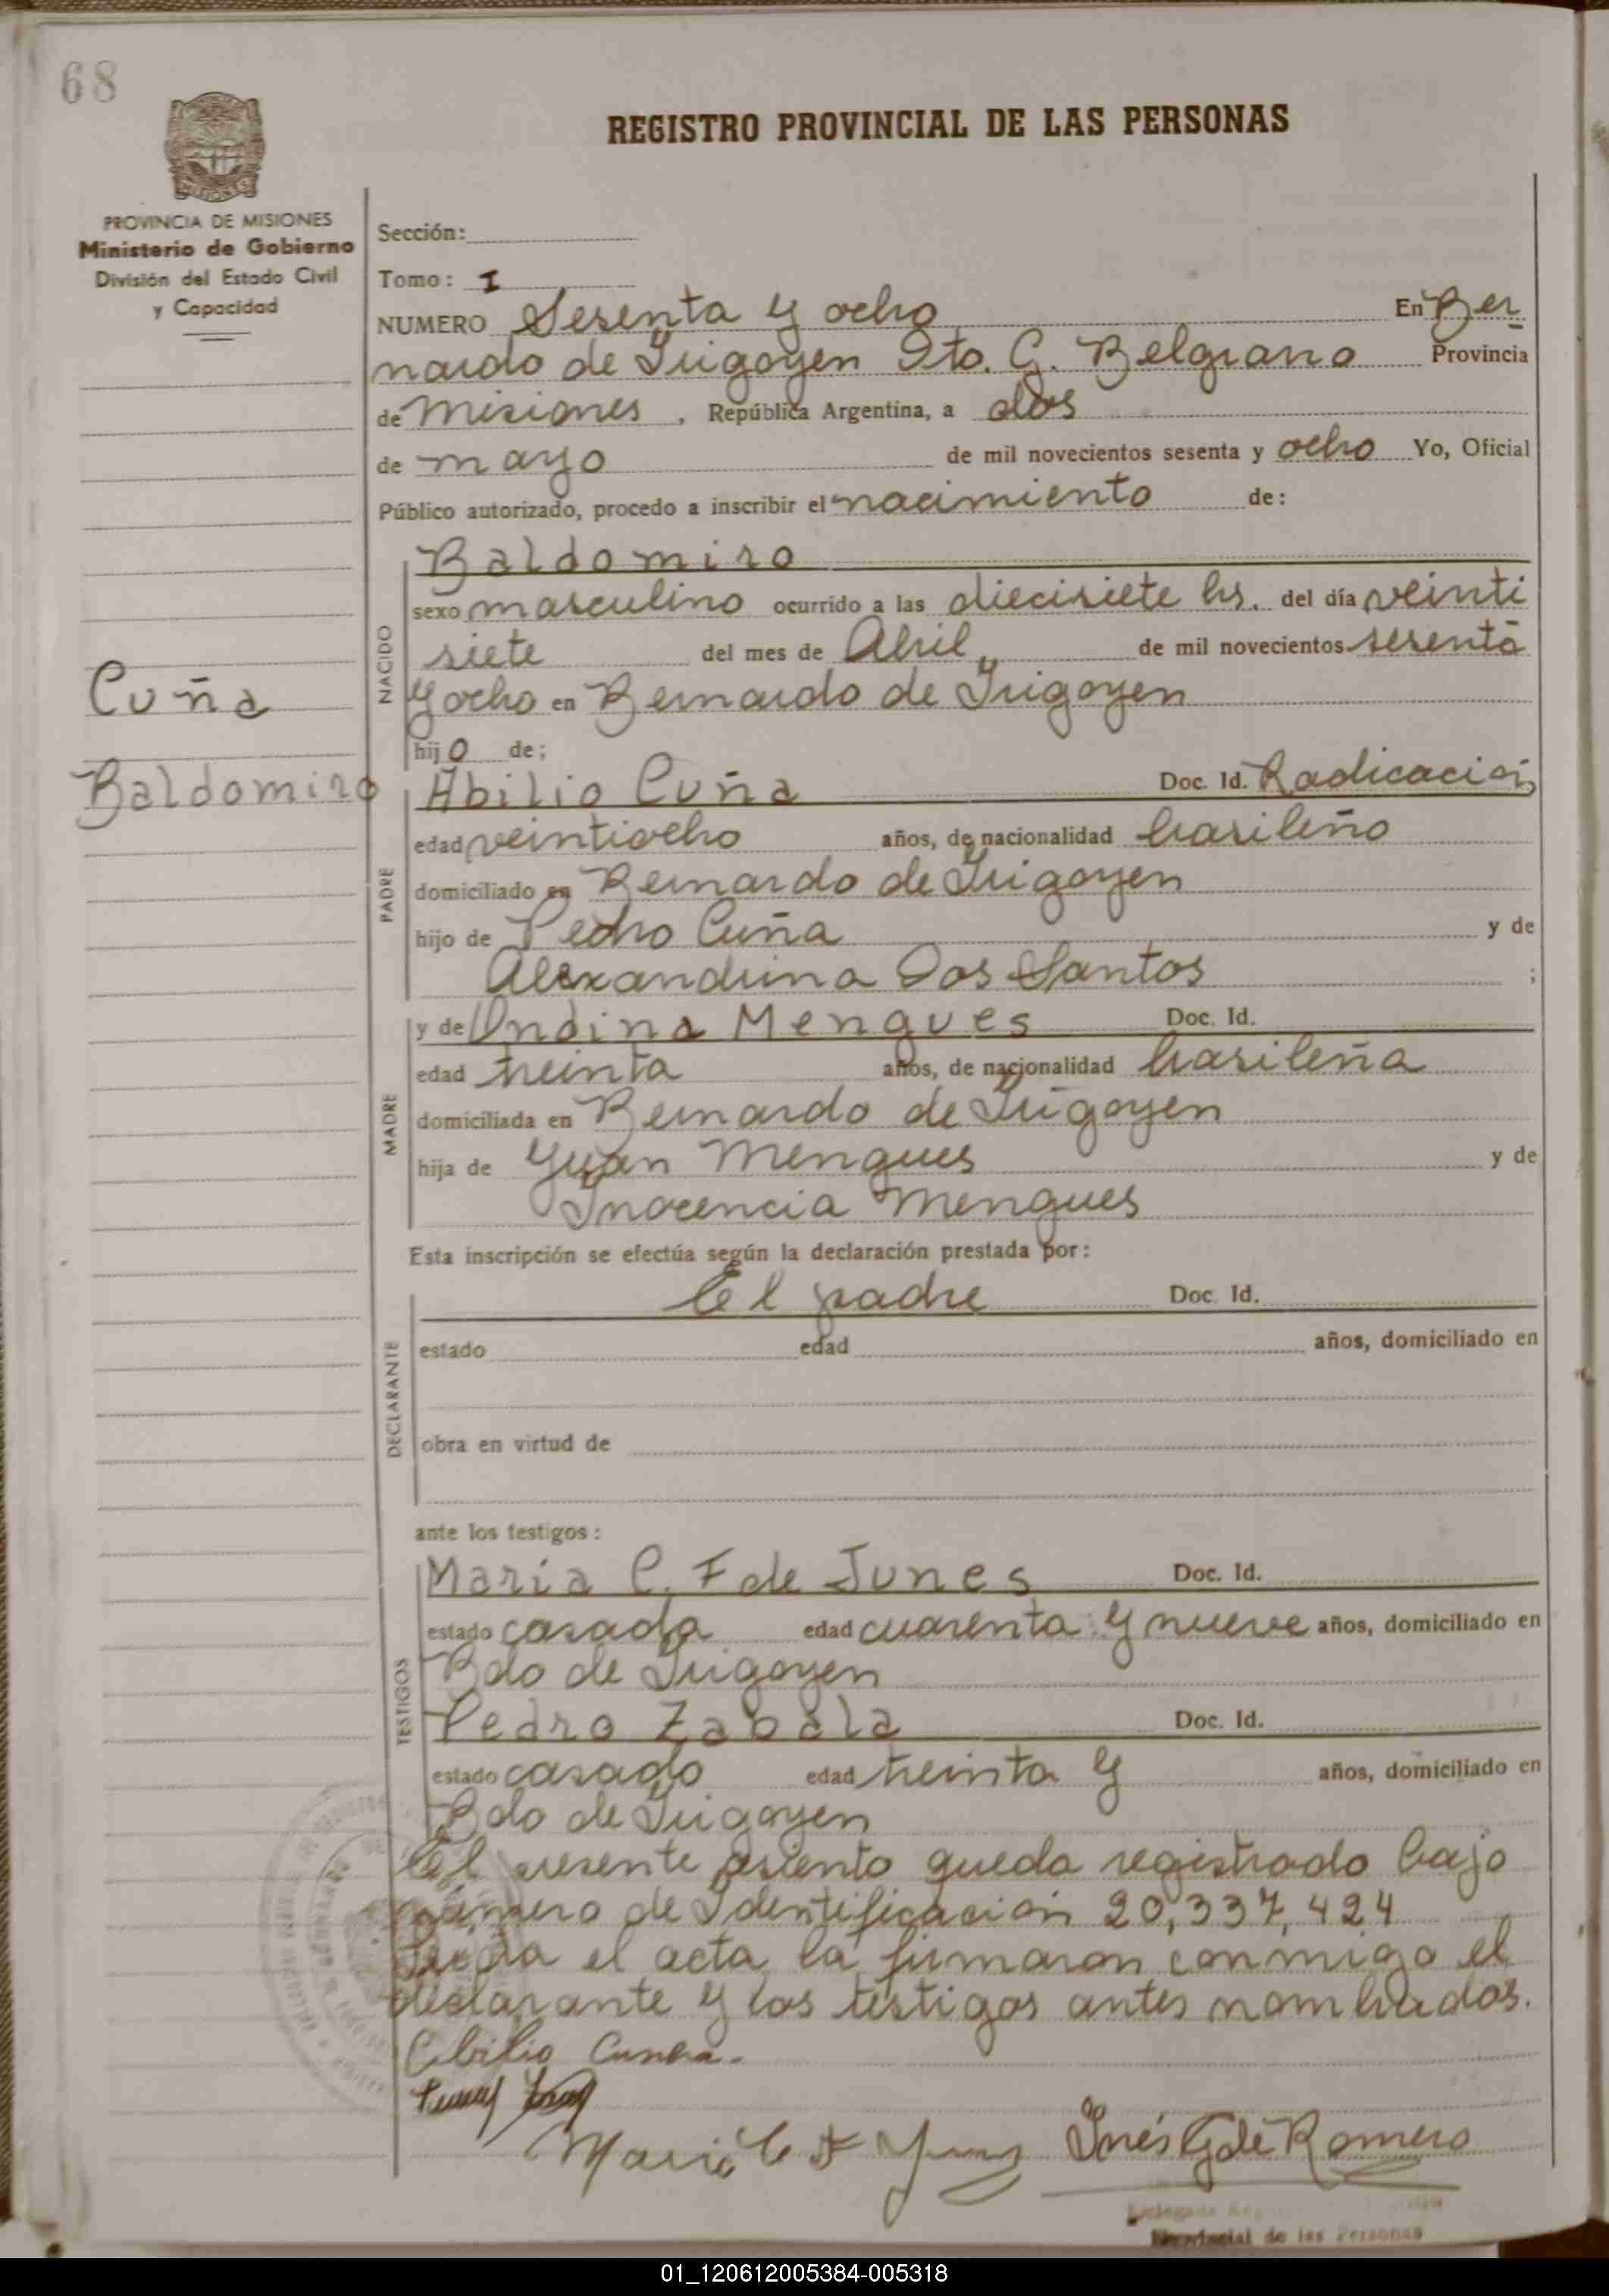 68
REGISTRO PROVINCIAL DE LAS PERSONAS
MISIONES
PROVINCIA DE MISIONES
Ministerio de Gobierno
División del Estado Civil
y Capacidad
Sección:
Tomo: I
NUMERO Sesenta y ocho En Ber
nardo de Irigoyen Dto. G. Belgrano Provincia
de Misiones, República Argentina, a dos
de mayo de mil novecientos sesenta y ocho Yo, Oficial
Público autorizado, procedo a inscribir el nacimiento de:
NACIDO
Baldomiro
sexo masculino ocurrido a las diecisiete hs. del día veinti
siete del mes de Abril de mil novecientos sesenta
y ocho en Bernardo de Irigoyen
Cuña
Baldomiro
hijo de:
PADRE
Abilio Cuña Doc. Id. Radicación
edad veintiocho años, de nacionalidad brasileño
domiciliado en Bernardo de Irigoyen
hijo de Pedro Cuña y de
Alexandrina Dos Santos ;
MADRE
y de Ondina Mengues Doc. Id.
edad treinta años, de nacionalidad brasileña
domiciliada en Bernardo de Irigoyen
hija de Juan Mengues y de
Inocencia Mengues
Esta inscripción se efectúa según la declaración prestada por:
DECLARANTE
El padre Doc. Id.
estado edad años, domiciliado en
obra en virtud de
ante los testigos:
TESTIGOS
María C. F de Junes Doc. Id.
estado casada edad cuarenta y nueve años, domiciliado en
Bdo de Irigoyen
Pedro Zabala Doc. Id.
estado casado edad treinta y años, domiciliado en
Bdo de Irigoyen
El presente asiento queda registrado bajo
número de Identificación 20,337,424
el acta la firmaron conmigo el
declarante y los testigos antes nombrados.
Abilio Cunha.
Maria C F
Inés G de Romero
Provincial de las Personas
01_120612005384-005318